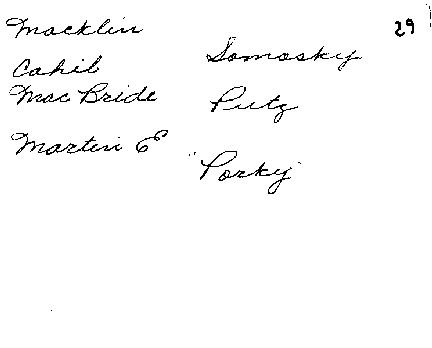 29
Macklin
Cahil
MacBride
Martin E
Somosky
Putz
"Porky"